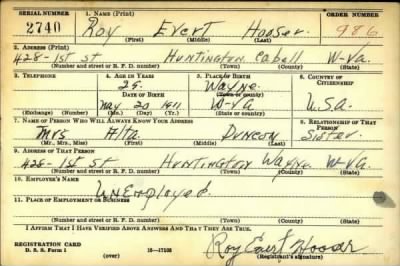 SERIAL NUMBER 1. NAME (Print) ORDER NUMBER
2740 Roy Evert Hooser 986
(First) (Middle) (Last)
2. ADDRESS (Print)
428-1st St Huntington Cabell W-Va.
(Number and street or R. F. D. number) (Town) (County) (State)
3. TELEPHONE 4. AGE IN YEARS 5. PLACE OF BIRTH 6. COUNTRY OF CITIZENSHIP
29. Wayne
(Town or county)
May 20 1911 W-Va U.S.A.
(Exchange) (Number) (Mo.) (Day) (Yr.) (State or country)
7. NAME OF PERSON WHO WILL ALWAYS KNOW YOUR ADDRESS 8. RELATIONSHIP OF THAT PERSON
Mrs Alta Duncan Sister.
(Mr., Mrs., Miss) (First) (Middle) (Last)
9. ADDRESS OF THAT PERSON
428-1st St Huntington Wayne W-Va.
(Number and street or R. F. D. number) (Town) (County) (State)
10. EMPLOYER'S NAME
Unemployed.
11. PLACE OF EMPLOYMENT OR BUSINESS
(Number and street or R. F. D. number) (Town) (County) (State)
I AFFIRM THAT I HAVE VERIFIED ABOVE ANSWERS AND THAT THEY ARE TRUE.
REGISTRATION CARD
D. S. S. Form 1 (over) 16—17105 Roy Evert Hooser
(Registrant's signature)